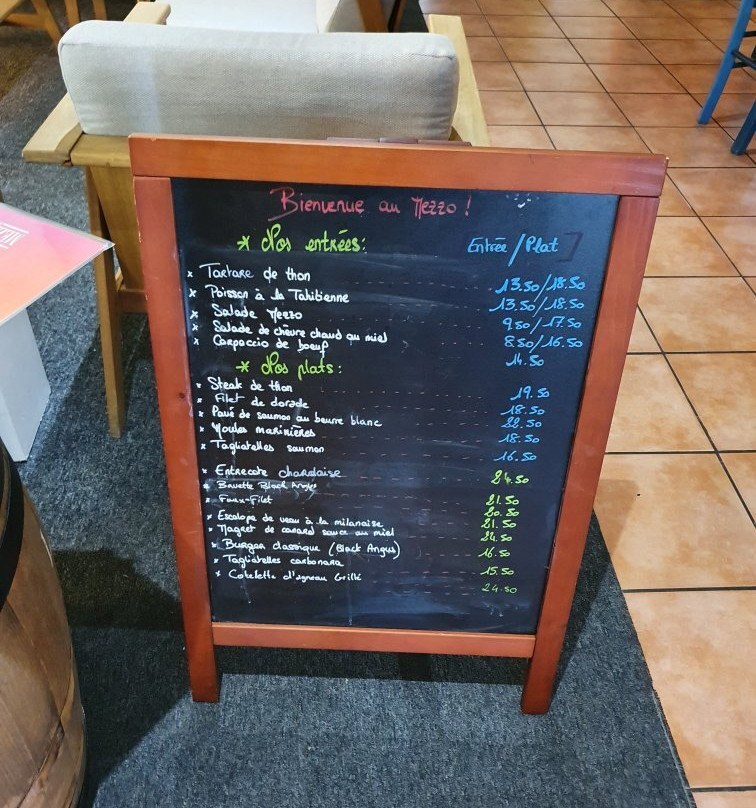 Bienvenue au Mezzo !
* Nos entrées: Entrée / Plat
x Tartare de thon 13.50/18.50
x Poisson à la Tahitienne 13.50/18.50
x Salade Mezzo 9.50/17.50
x Salade de chèvre chaud au miel 8.50/16.50
x Carpaccio de boeuf 14.50
* Nos plats:
x Steak de thon 19.50
x Filet de dorade 18.50
x Pavé de saumon au beurre blanc 22.50
x Moules marinières 18.50
x Tagliatelles saumon 16.50
x Entrecote charolaise 24.50
x Bavette Black Angus 21.50
x Faux-Filet 20.50
x Escalope de veau à la milanaise 21.50
x Magret de canard sauce au miel 24.50
x Burger classique (Black Angus) 16.50
x Tagliatelles carbonara 15.50
x Cotelette d'agneau Grillé 24.50